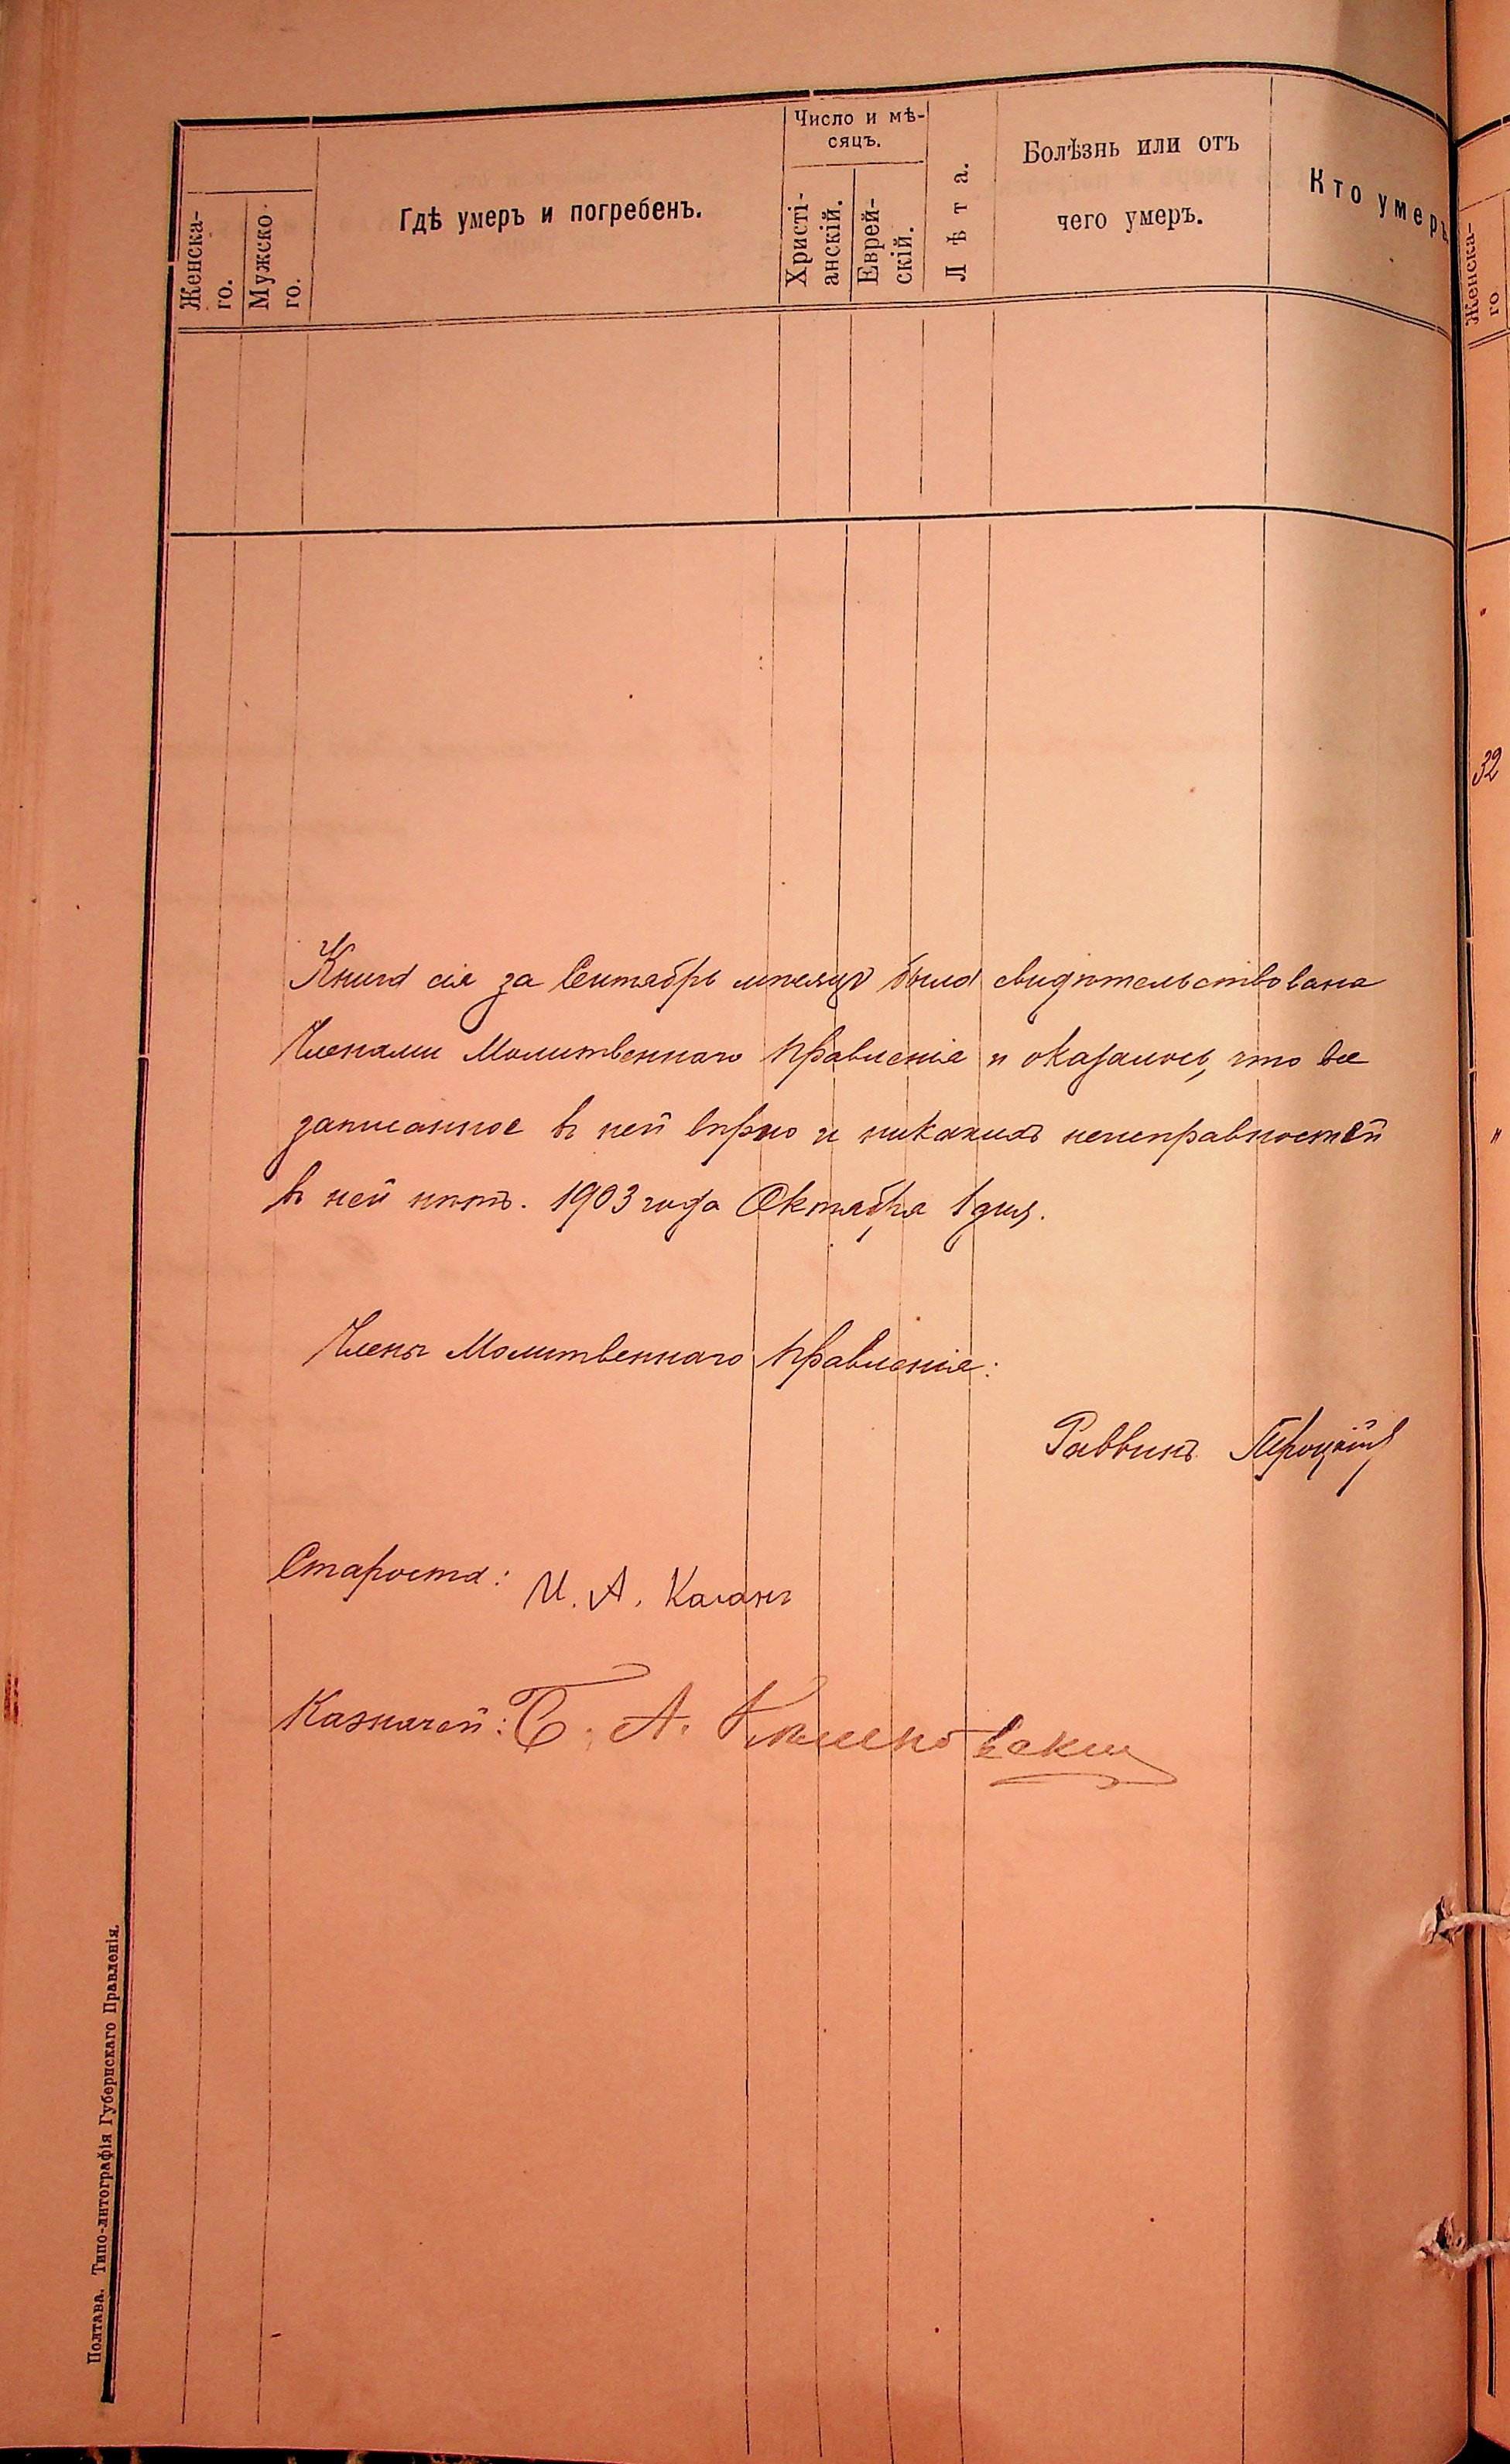 Число и мѣ-
сяцъ.
Женска-
го.
Мужско-
го.
Гдѣ умеръ и погребенъ.
Христі-
анскій.
Еврей-
скій.
Лѣта.
Болѣзнь или отъ
чего умеръ.
Кто умеръ
Женска-
го
32
Книга сія за Сентябрь мѣсяцъ была свидѣтельствована
Членами Молитвеннаго Правленія и оказалось, что все
записанное въ ней вѣрно и никакихъ неисправностей
въ ней нѣтъ. 1903 года Октября 1 дня.
Члены Молитвеннаго Правленія:
Раввинъ
Староста: И. А. Каганъ
Казначей: Б. А.
Полтава. Типо-литографія Губернскаго Правленія.